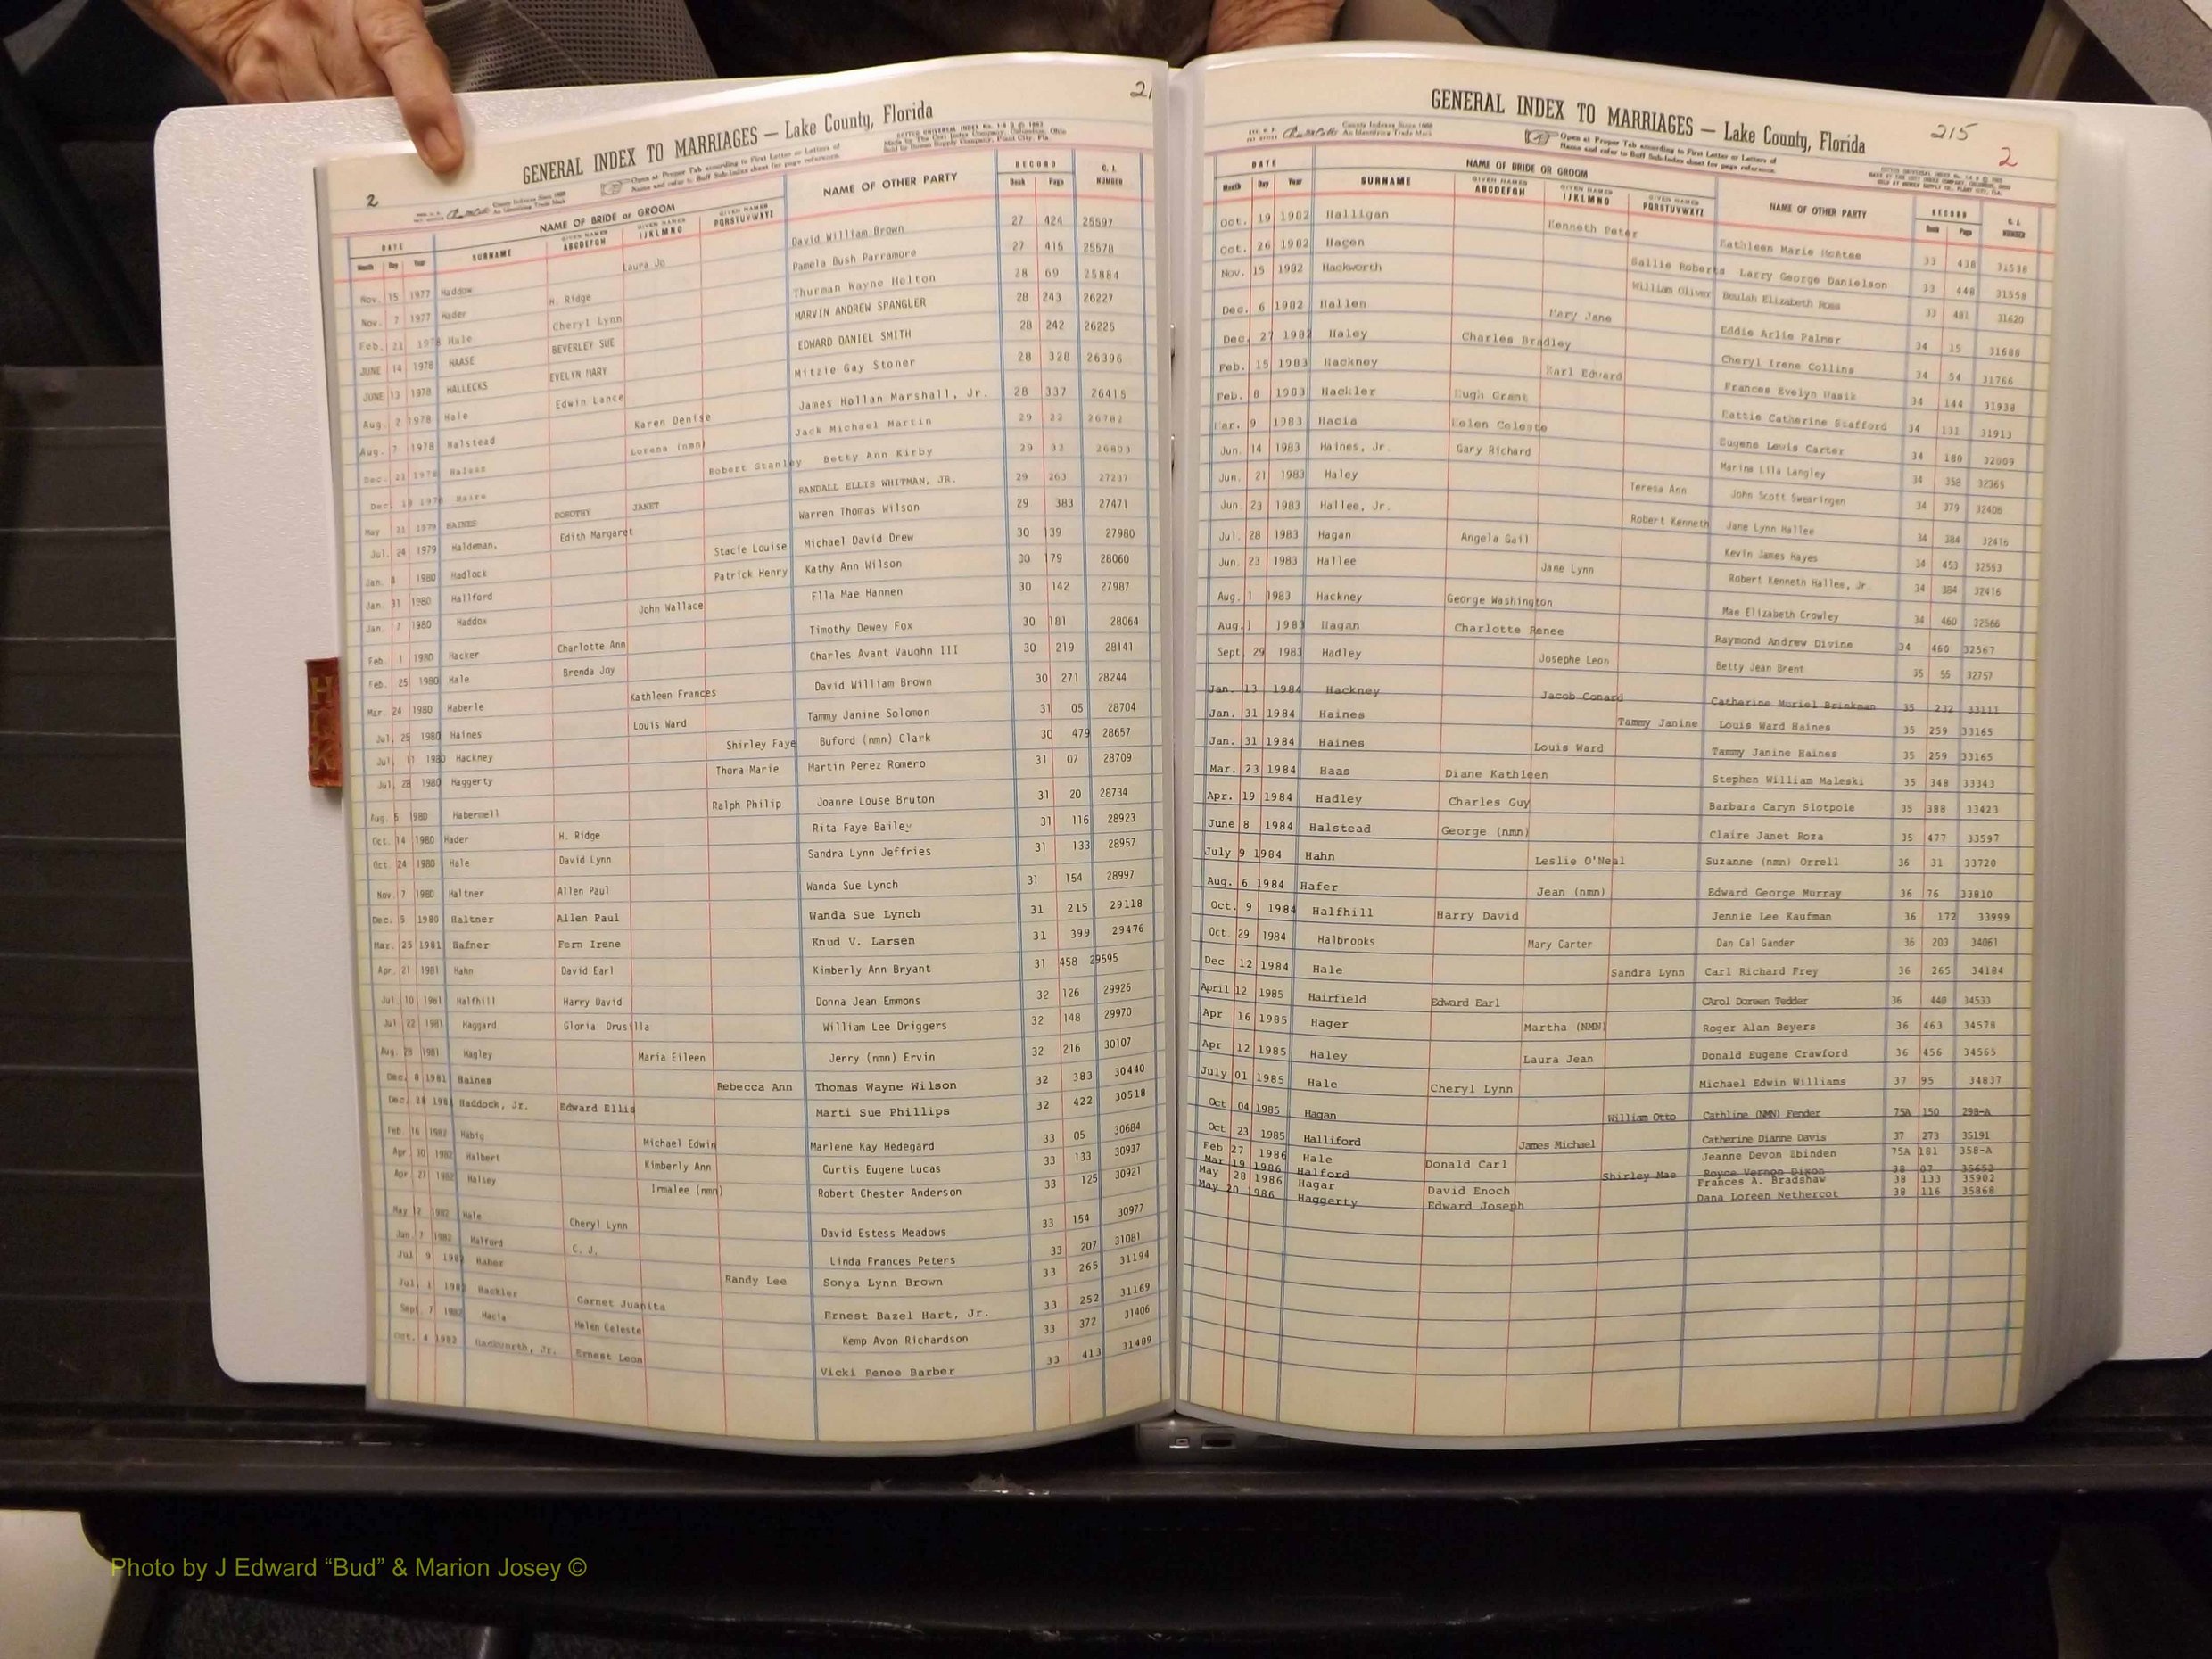 2
21
GENERAL INDEX TO MARRIAGES — Lake County, Florida
County Indexes Since 1888
An Identifying Trade Mark
Open at Proper Tab according to First Letter or Letters of
Name and refer to Buff Sub-Index sheet for page reference.
DATE NAME OF BRIDE or GROOM NAME OF OTHER PARTY RECORD C. I. NUMBER
Month Day Year SURNAME GIVEN NAMES ABCDEFGH GIVEN NAMES IJKLMNO GIVEN NAMES PQRSTUVWXYZ Book Page
Nov. 15 1977 Haddow Laura Jo David William Brown 27 424 25597
Nov. 7 1977 Hader H. Ridge Pamela Bush Parramore 27 415 25578
Feb. 21 1978 Hale Cheryl Lynn Thurman Wayne Helton 28 69 25884
JUNE 14 1978 HAASE BEVERLEY SUE MARVIN ANDREW SPANGLER 28 243 26227
JUNE 13 1978 HALLECKS EVELYN MARY EDWARD DANIEL SMITH 28 242 26225
Aug. 2 1978 Hale Edwin Lance Mitzie Gay Stoner 28 328 26396
Aug. 7 1978 Halstead Karen Denise James Hollan Marshall, Jr. 28 337 26415
Dec. 21 1978 Lorena (nmn) Jack Michael Martin 29 22 26782
Dec. 18 1978 Haire Robert Stanley Betty Ann Kirby 29 32 26803
May 22 1979 HAINES DOROTHY JANET RANDALL ELLIS WHITMAN, JR. 29 263 27237
Jul. 24 1979 Haldeman, Edith Margaret Warren Thomas Wilson 29 383 27471
Jan. 4 1980 Hadlock Stacie Louise Michael David Drew 30 139 27980
Jan. 31 1980 Hallford Patrick Henry Kathy Ann Wilson 30 179 28060
Jan. 7 1980 Haddox John Wallace Flla Mae Hannen 30 142 27987
Feb. 1 1980 Hacker Charlotte Ann Timothy Dewey Fox 30 181 28064
Feb. 25 1980 Hale Brenda Joy Charles Avant Vaughn III 30 219 28141
Mar. 24 1980 Haberle Kathleen Frances David William Brown 30 271 28244
Jul. 25 1980 Haines Louis Ward Tammy Janine Solomon 31 05 28704
Jul. 11 1980 Hackney Shirley Faye Buford (nmn) Clark 30 479 28657
Jul. 28 1980 Haggerty Thora Marie Martin Perez Romero 31 07 28709
Aug. 5 1980 Habermell Ralph Philip Joanne Louse Bruton 31 20 28734
Oct. 14 1980 Hader H. Ridge Rita Faye Bailey 31 116 28923
Oct. 24 1980 Hale David Lynn Sandra Lynn Jeffries 31 133 28957
Nov. 7 1980 Haltner Allen Paul Wanda Sue Lynch 31 154 28997
Dec. 5 1980 Haltner Allen Paul Wanda Sue Lynch 31 215 29118
Mar. 25 1981 Hafner Fern Irene Knud V. Larsen 31 399 29476
Apr. 21 1981 Hahn David Earl Kimberly Ann Bryant 31 458 29595
Jul. 10 1981 Halfhill Harry David Donna Jean Emmons 32 126 29926
Jul. 22 1981 Haggard Gloria Drusilla William Lee Driggers 32 148 29970
Aug. 28 1981 Hagley Maria Eileen Jerry (nmn) Ervin 32 216 30107
Dec. 8 1981 Haines Rebecca Ann Thomas Wayne Wilson 32 383 30440
Dec. 28 1981 Haddock, Jr. Edward Ellis Marti Sue Phillips 32 422 30518
Feb. 16 1982 Habig Michael Edwin Marlene Kay Hedegard 33 05 30684
Apr. 30 1982 Halbert Kimberly Ann Curtis Eugene Lucas 33 133 30937
Apr. 27 1982 Halsey Irmalee (nmn) Robert Chester Anderson 33 125 30921
May 12 1982 Hale Cheryl Lynn David Estess Meadows 33 154 30977
Jun. 7 1982 Halford C. J. Linda Frances Peters 33 207 31081
Jul. 9 1982 Haber Randy Lee Sonya Lynn Brown 33 265 31194
Jul. 1 1982 Hackler Garnet Juanita Ernest Bazel Hart, Jr. 33 252 31169
Sept. 7 1982 Hacia Helen Celeste Kemp Avon Richardson 33 372 31406
Oct. 4 1982 Hackworth, Jr. Ernest Leon Vicki Renee Barber 33 413 31489
215
2
GENERAL INDEX TO MARRIAGES — Lake County, Florida
County Indexes Since 1888
An Identifying Trade Mark
Open at Proper Tab according to First Letter or Letters of
Name and refer to Buff Sub-Index sheet for page reference.
DATE NAME OF BRIDE OR GROOM NAME OF OTHER PARTY RECORD C. I. NUMBER
Month Day Year SURNAME GIVEN NAMES ABCDEFGH GIVEN NAMES IJKLMNO GIVEN NAMES PQRSTUVWXYZ Book Page
Oct. 19 1982 Halligan Kenneth Peter Kathleen Marie McAtee 33 438 31538
Oct. 26 1982 Hagen Sallie Roberts Larry George Danielson 33 448 31558
Nov. 15 1982 Hackworth William Oliver Beulah Elizabeth Ross 33 481 31620
Dec. 6 1982 Hallen Mary Jane Eddie Arlie Palmer 34 15 31686
Dec. 27 1982 Haley Charles Bradley Cheryl Irene Collins 34 54 31766
Feb. 15 1983 Hackney Earl Edward Frances Evelyn Hasik 34 144 31938
Feb. 8 1983 Hackler Hugh Grant Hattie Catherine Stafford 34 131 31913
Mar. 9 1983 Hacia Helen Celeste Eugene Lewis Carter 34 180 32009
Jun. 14 1983 Haines, Jr. Gary Richard Marina Lila Langley 34 358 32365
Jun. 21 1983 Haley Teresa Ann John Scott Swearingen 34 379 32406
Jun. 23 1983 Hallee, Jr. Robert Kenneth Jane Lynn Hallee 34 384 32416
Jul. 28 1983 Hagan Angela Gail Kevin James Hayes 34 453 32553
Jun. 23 1983 Hallee Jane Lynn Robert Kenneth Hallee, Jr. 34 384 32416
Aug. 1 1983 Hackney George Washington Mae Elizabeth Crowley 34 460 32566
Aug. 1 1983 Hagan Charlotte Renee Raymond Andrew Divine 34 460 32567
Sept. 29 1983 Hadley Josephe Leon Betty Jean Brent 35 55 32757
Jan. 13 1984 Hackney Jacob Conard Catherine Muriel Brinkman 35 232 33111
Jan. 31 1984 Haines Tammy Janine Louis Ward Haines 35 259 33165
Jan. 31 1984 Haines Louis Ward Tammy Janine Haines 35 259 33165
Mar. 23 1984 Haas Diane Kathleen Stephen William Maleski 35 348 33343
Apr. 19 1984 Hadley Charles Guy Barbara Caryn Slotpole 35 388 33423
June 8 1984 Halstead George (nmn) Claire Janet Roza 35 477 33597
July 9 1984 Hahn Leslie O'Neal Suzanne (nmn) Orrell 36 31 33720
Aug. 6 1984 Hafer Jean (nmn) Edward George Murray 36 76 33810
Oct. 9 1984 Halfhill Harry David Jennie Lee Kaufman 36 172 33999
Oct. 29 1984 Halbrooks Mary Carter Dan Cal Gander 36 203 34061
Dec 12 1984 Hale Sandra Lynn Carl Richard Frey 36 265 34184
April 12 1985 Hairfield Edward Earl CArol Doreen Tedder 36 440 34533
Apr 16 1985 Hager Martha (NMN) Roger Alan Beyers 36 463 34578
Apr 12 1985 Haley Laura Jean Donald Eugene Crawford 36 456 34565
July 01 1985 Hale Cheryl Lynn Michael Edwin Williams 37 95 34837
Oct 04 1985 Hagan William Otto Cathline (NMN) Fender 75A 150 298-A
Oct 23 1985 Halliford James Michael Catherine Dianne Davis 37 273 35191
Feb 27 1986 Hale Donald Carl Jeanne Devon Zbinden 75A 181 358-A
Mar 19 1986 Halford Shirley Mae Royce Vernon Dixon 38 07 35652
May 28 1986 Hagar David Enoch Frances A. Bradshaw 38 133 35902
May 20 1986 Haggerty Edward Joseph Dana Loreen Nethercot 38 116 35868
H I K
Photo by J Edward “Bud” & Marion Josey ©